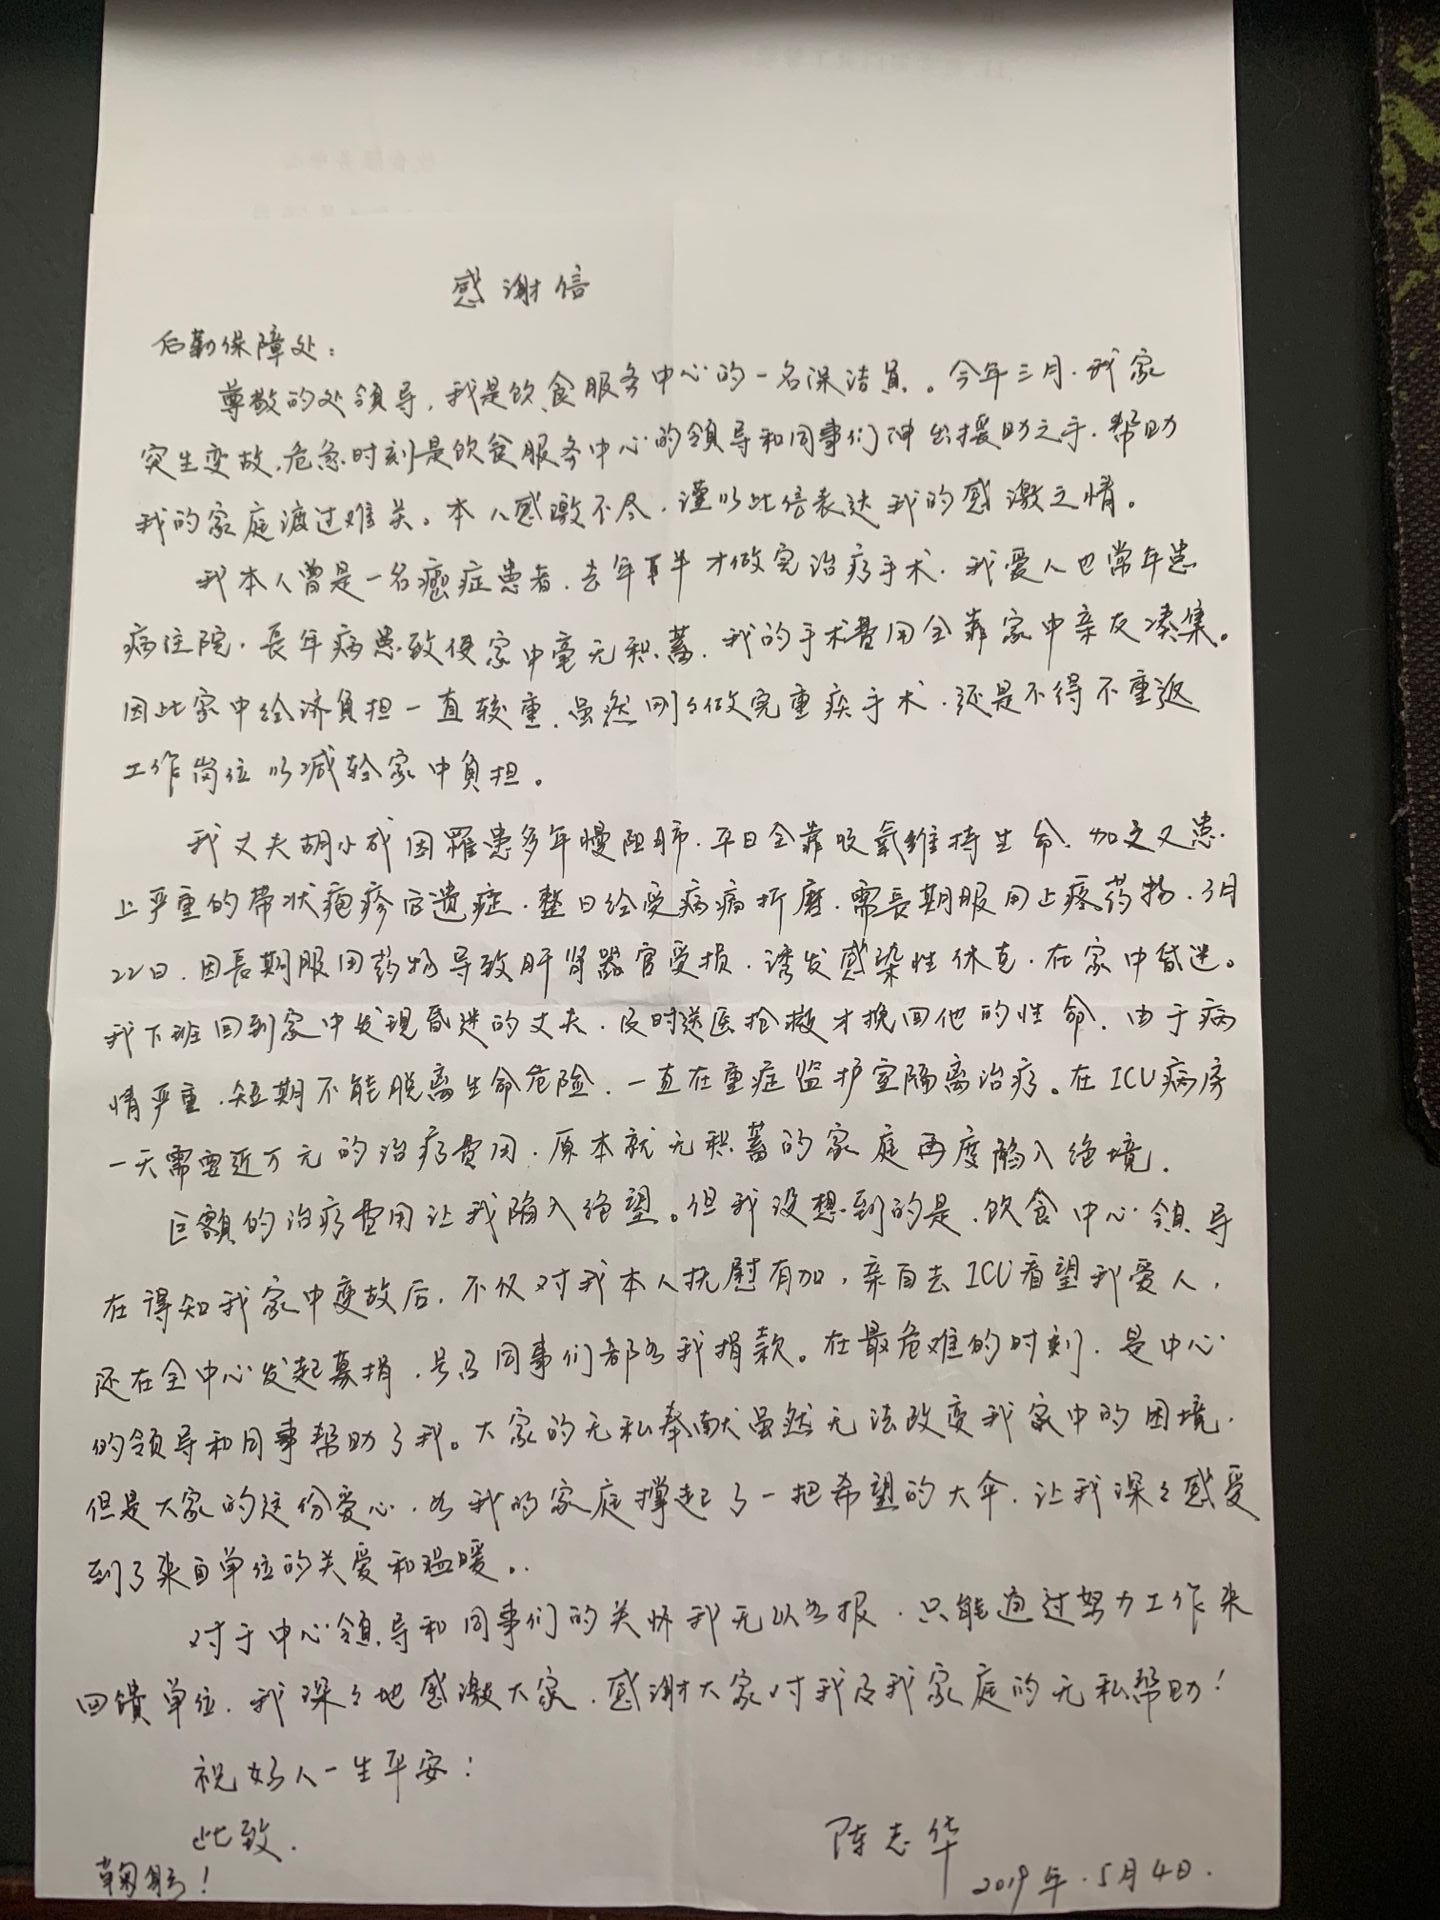 感谢信
后勤保障处：
尊敬的处领导，我是饮食服务中心的一名保洁员。今年三月，我家
突生变故，危急时刻是饮食服务中心的领导和同事们伸出援助之手，帮助
我的家庭渡过难关。本人感激不尽，谨以此信表达我的感激之情。
我本人曾是一名癌症患者，去年夏半才做完治疗手术，我爱人也常年患
病住院，長年病患致使家中毫无积蓄，我的手术费用全靠家中亲友凑集。
因此家中经济负担一直较重，虽然刚刚做完重疾手术，还是不得不重返
工作岗位以减轻家中负担。
我丈夫胡小成因罹患多年慢阻肺，平日全靠吸氧维持生命，加之又患
上严重的带状疱疹后遗症，整日经受病痛折磨，需長期服用止疼药物，3月
22日，因長期服用药物导致肝肾器官受损，诱发感染性休克，在家中昏迷。
我下班回到家中发现昏迷的丈夫，及时送医抢救才挽回他的性命，由于病
情严重，短期不能脱离生命危险，一直在重症监护室隔离治疗。在ICU病房
一天需要近万元的治疗费用，原本就无积蓄的家庭再度陷入绝境．
巨额的治疗费用让我陷入绝望。但我没想到的是，饮食中心领导
在得知我家中变故后，不仅对我本人抚慰有加，亲自去ICU看望我爱人，
还在全中心发起募捐，号召同事们都为我捐款。在最危难的时刻，是中心
的领导和同事帮助了我。大家的无私奉献虽然无法改变我家中的困境，
但是大家的这份爱心，为我的家庭撑起了一把希望的大伞，让我深深感受
到了来自单位的关爱和温暖。
对于中心领导和同事们的关怀我无以为报，只能通过努力工作来
回馈单位，我深深地感激大家，感谢大家对我及我家庭的无私帮助！
祝好人一生平安！
此致．
鞠躬！
陈志华
2019年．5月4日．